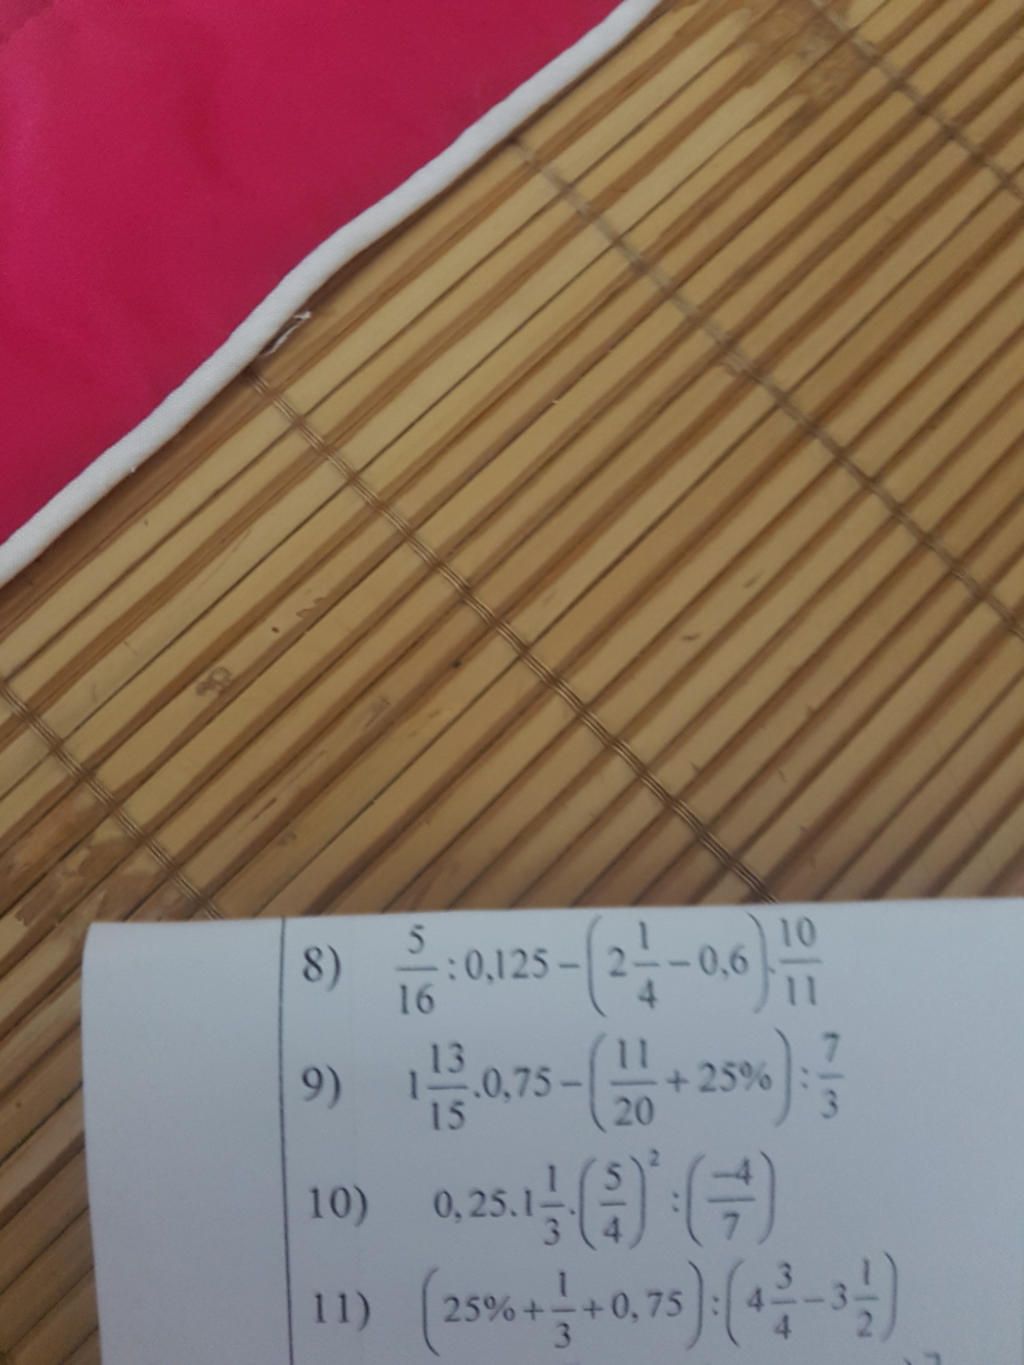 8) 5/16 : 0,125 – (2 1/4 – 0,6) . 10/11
9) 1 13/15 . 0,75 – (11/20 + 25%) : 7/3
10) 0,25.1 1/3 . (5/4)² : (–4/7)
11) (25% + 1/3 + 0,75) : (4 3/4 – 3 1/2)